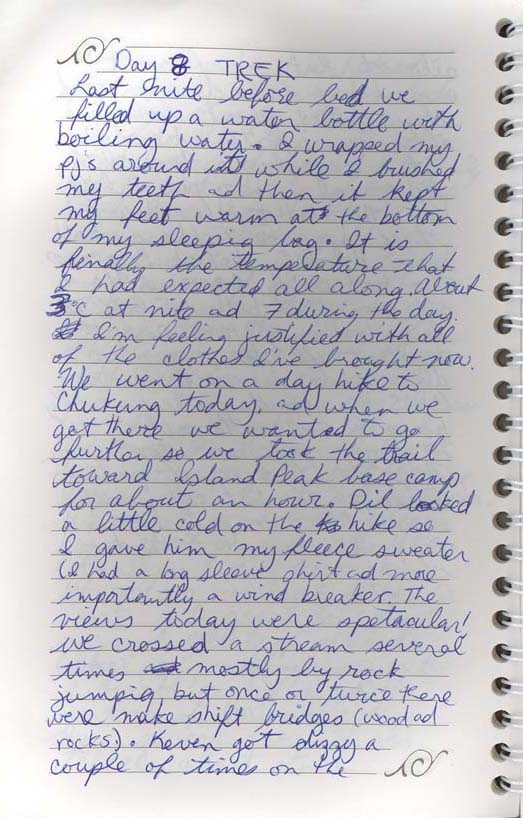 Day 8 TREK
Last nite before bed we
filled up a water bottle with
boiling water. I wrapped my
pj's around it while I brushed
my teeth ad then it kept
my feet warm at the bottom
of my sleepig bag. It is
finally the temperature that
I had expected all along. About
3°C at nite ad 7 during the day.
I'm feeling justified with all
of the clothes I've brought now.
We went on a day hike to
Chukung today, ad when we
got there we wanted to go
further so we took the trail
toward Island Peak base camp
for about an hour. Dil looked
a little cold on the hike so
I gave him my fleece sweater
(I had a long sleeve shirt ad more
importantly a wind breaker. The
views today were spetacular!
We crossed a stream several
times mostly by rock
jumpig but once or twice there
were make shift bridges (wood ad
rocks). Keven got dizzy a
couple of times on the